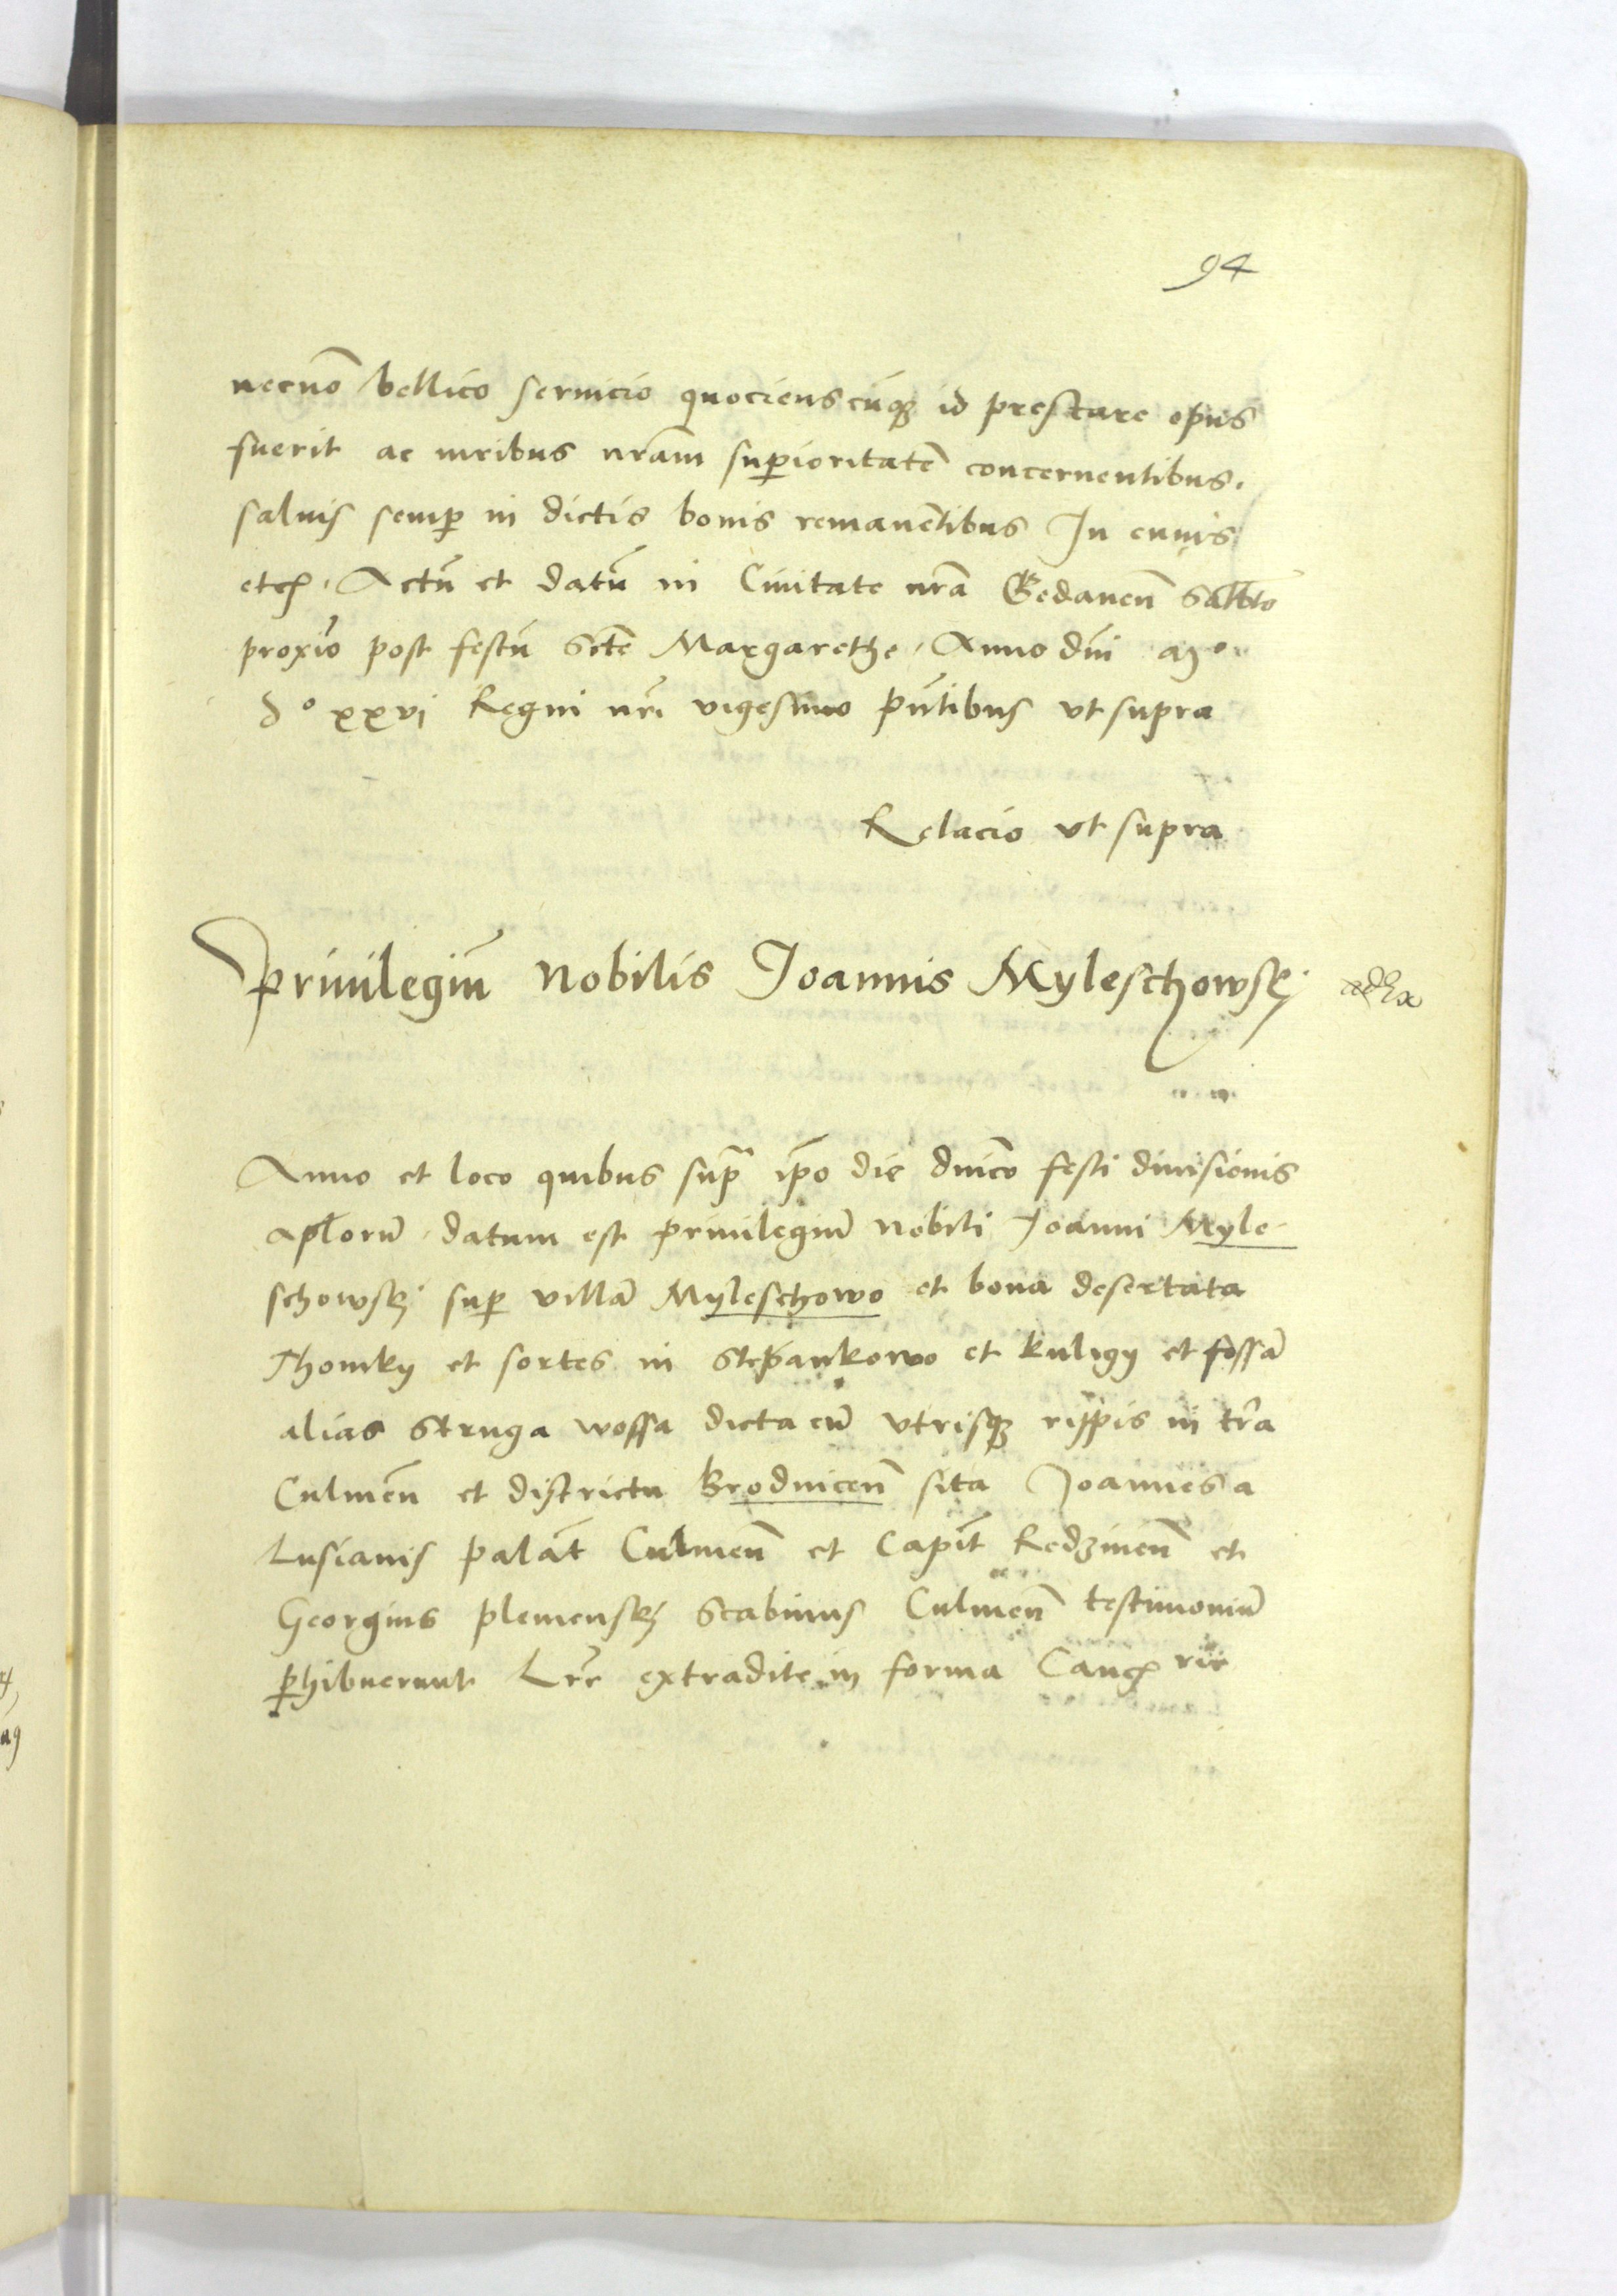 94
necnō bellico seruicio quocienscūq₃ id prestare opus
fuerit ac iuribus nr̄am superioritatē concernentibus.
saluis semp in dictis bonis remanētibus In cuius
etc. Actū et datū in Ciuitate nr̄a Gedanen̄ Sabbto
proxīo post festū Scte Margarethe. Anno dn̄i Mº
Dº xxvi Regni nr̄i vigesimo pn̄tibus vt supra
Relacio vt supra
Priuilegiū nobilis Joannis Myleschowsky
Anno et loco quibus supra ip̄o die dn̄ico festi diuisionis
apl̄orū datum est priuilegiū nobili Joanni Myle-
schowskj sup villā Myleschowo et bona desertata
Thomky et sortes in Stepankowo et kuligy et fossā
alias struga wossa dicta cū vtrisq₃ rippis in tr̄a
Culmen̄ et districtu Brodnicen̄ sita Joannes a
Lusianis palāt Culmen̄ et Capīt Redzinen̄ et
Georgius plemenskj Scabinus Culmen̄ testimoniū
phibuerunt Lr̄e extradite in forma Canc rie